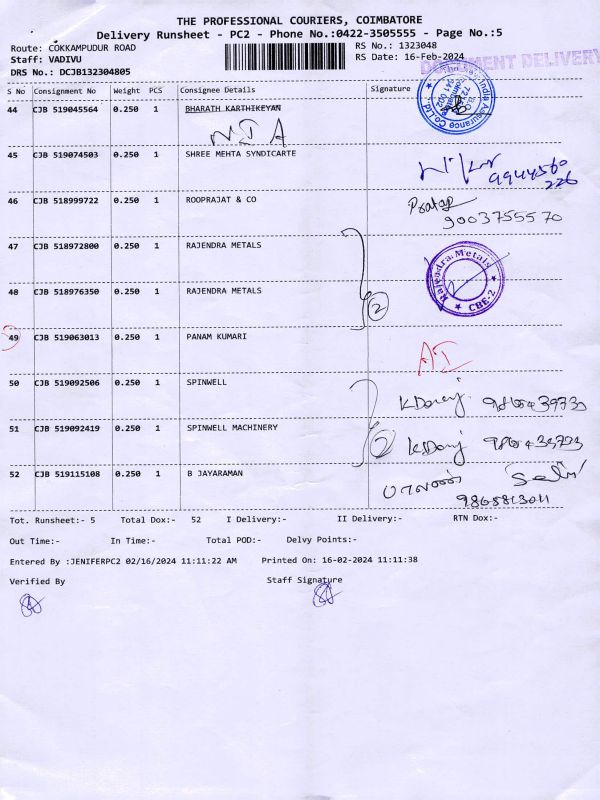 THE PROFESSIONAL COURIERS, COIMBATORE
Delivery Runsheet - PC2 - Phone No.:0422-3505555 - Page No.:5
Route: COKKAMPUDUR ROAD RS No.: 1323048
Staff: VADIVU RS Date: 16-Feb-2024
DRS No.: DCJB132304805
S No Consignment No Weight PCS Consignee Details Signature
44 CJB 519045564 0.250 1 BHARATH KARTHIKEYAN
NIA
45 CJB 519074503 0.250 1 SHREE MEHTA SYNDICARTE
9944560
226
46 CJB 518999722 0.250 1 ROOPRAJAT & CO Pratap
9003755570
47 CJB 518972800 0.250 1 RAJENDRA METALS
Rajendra Metals
CBE-2
48 CJB 518976350 0.250 1 RAJENDRA METALS
2
49 CJB 519063013 0.250 1 PANAM KUMARI
AI
50 CJB 519092506 0.250 1 SPINWELL
51 CJB 519092419 0.250 1 SPINWELL MACHINERY
2
52 CJB 519115108 0.250 1 B JAYARAMAN
Tot. Runsheet:- 5 Total Dox:- 52 I Delivery:- II Delivery:- RTN Dox:-
Out Time:- In Time:- Total POD:- Delvy Points:-
Entered By :JENIFERPC2 02/16/2024 11:11:22 AM Printed On: 16-02-2024 11:11:38
Verified By Staff Signature